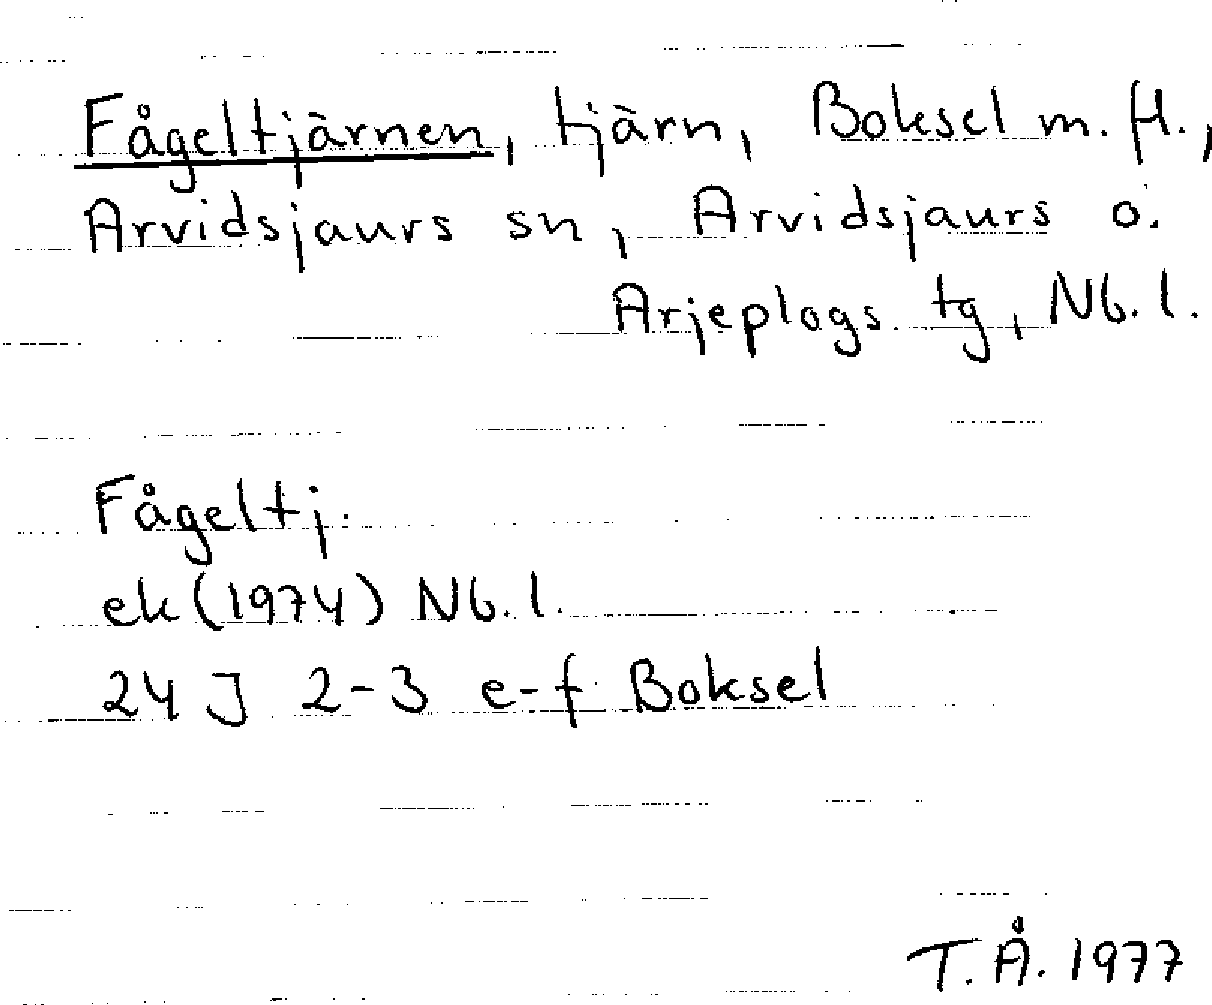 Fågeltjärnen, tjärn, Boksel m. fl.,
Arvidsjaurs sn, Arvidsjaurs o.
Arjeplogs tg, Nb. l.
Fågeltj.
ek (1974) Nb. l.
24 J 2-3 e-f Boksel
T. Å. 1977